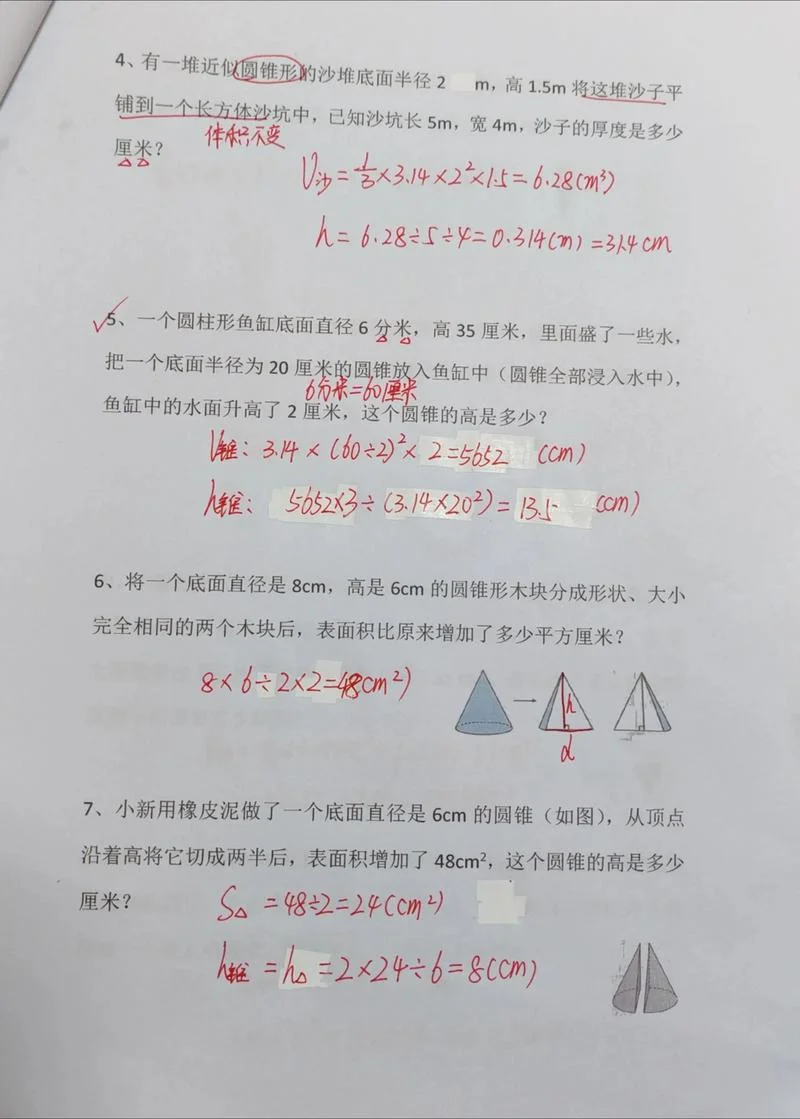 4、有一堆近似圆锥形的沙堆底面半径 2 m，高 1.5m 将这堆沙子平
铺到一个长方体沙坑中，已知沙坑长 5m，宽 4m，沙子的厚度是多少
厘米？
体积不变
V沙 = 1/3 × 3.14 × 2² × 1.5 = 6.28(m³)
h = 6.28÷5÷4 = 0.314(m) = 31.4cm
5、一个圆柱形鱼缸底面直径 6 分米，高 35 厘米，里面盛了一些水，
把一个底面半径为 20 厘米的圆锥放入鱼缸中（圆锥全部浸入水中），
6分米=60厘米
鱼缸中的水面升高了 2 厘米，这个圆锥的高是多少？
V锥：3.14 × (60÷2)² × 2 = 5652 (cm)
h锥：5652×3÷(3.14×20²) = 13.5 (cm)
6、将一个底面直径是 8cm，高是 6cm 的圆锥形木块分成形状、大小
完全相同的两个木块后，表面积比原来增加了多少平方厘米？
8×6÷2×2=48cm²)
h
d
7、小新用橡皮泥做了一个底面直径是 6cm 的圆锥（如图），从顶点
沿着高将它切成两半后，表面积增加了 48cm²，这个圆锥的高是多少
厘米？
S△ = 48÷2 = 24(cm²)
h锥 = h△ = 2×24÷6 = 8(cm)